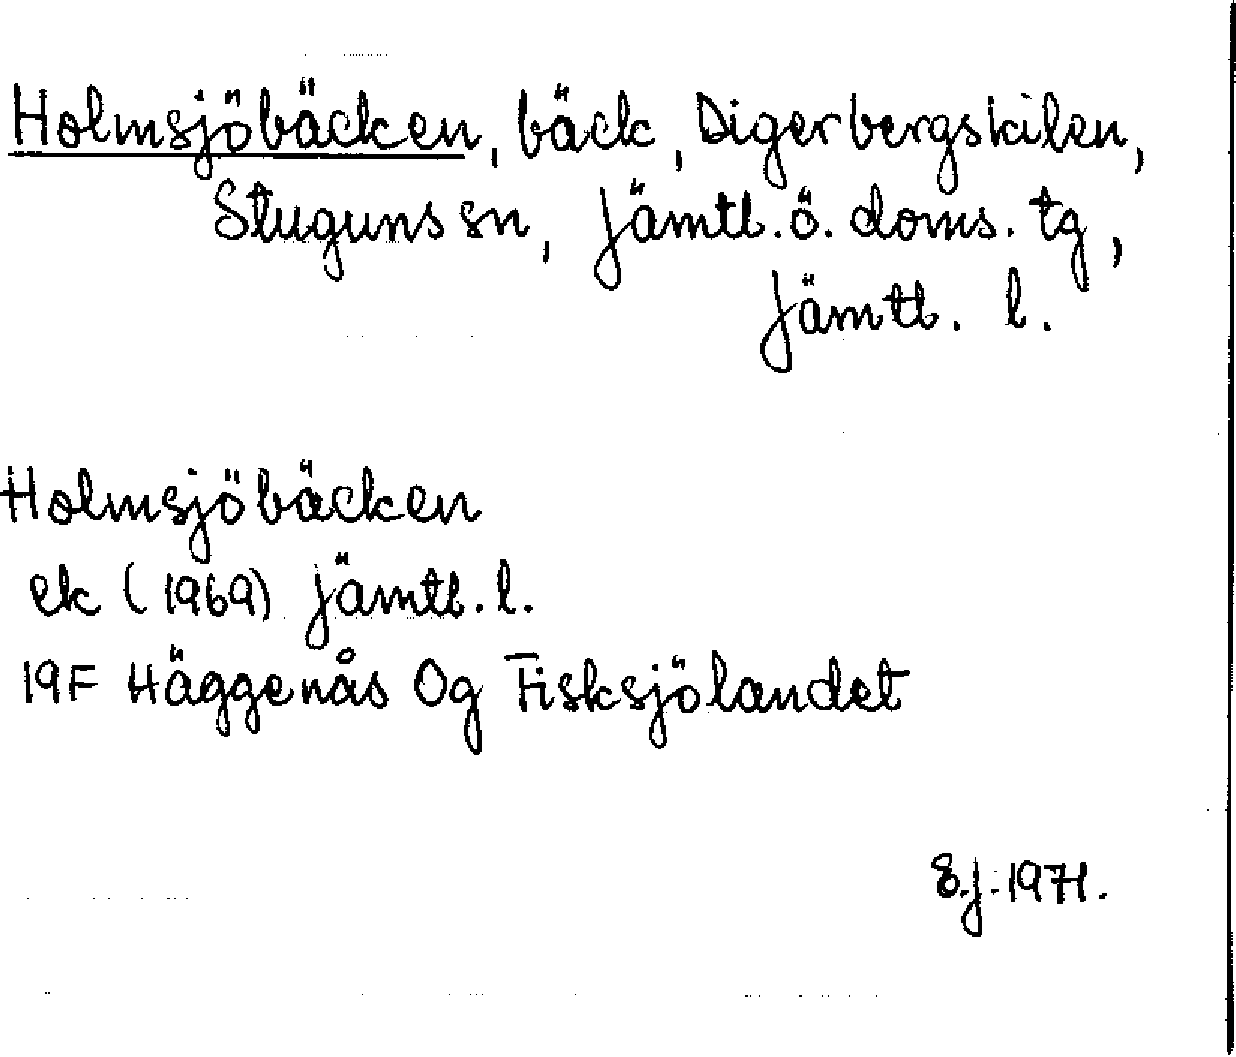 Holmsjöbäcken, bäck, Digerbergskilen,
Stuguns sn, Jämtl. ö. doms. tg,
Jämtl. l.
Holmsjöbäcken
ek (1969) Jämtl. l.
19F Häggenås Og Fisksjölandet
E.J. 1971.